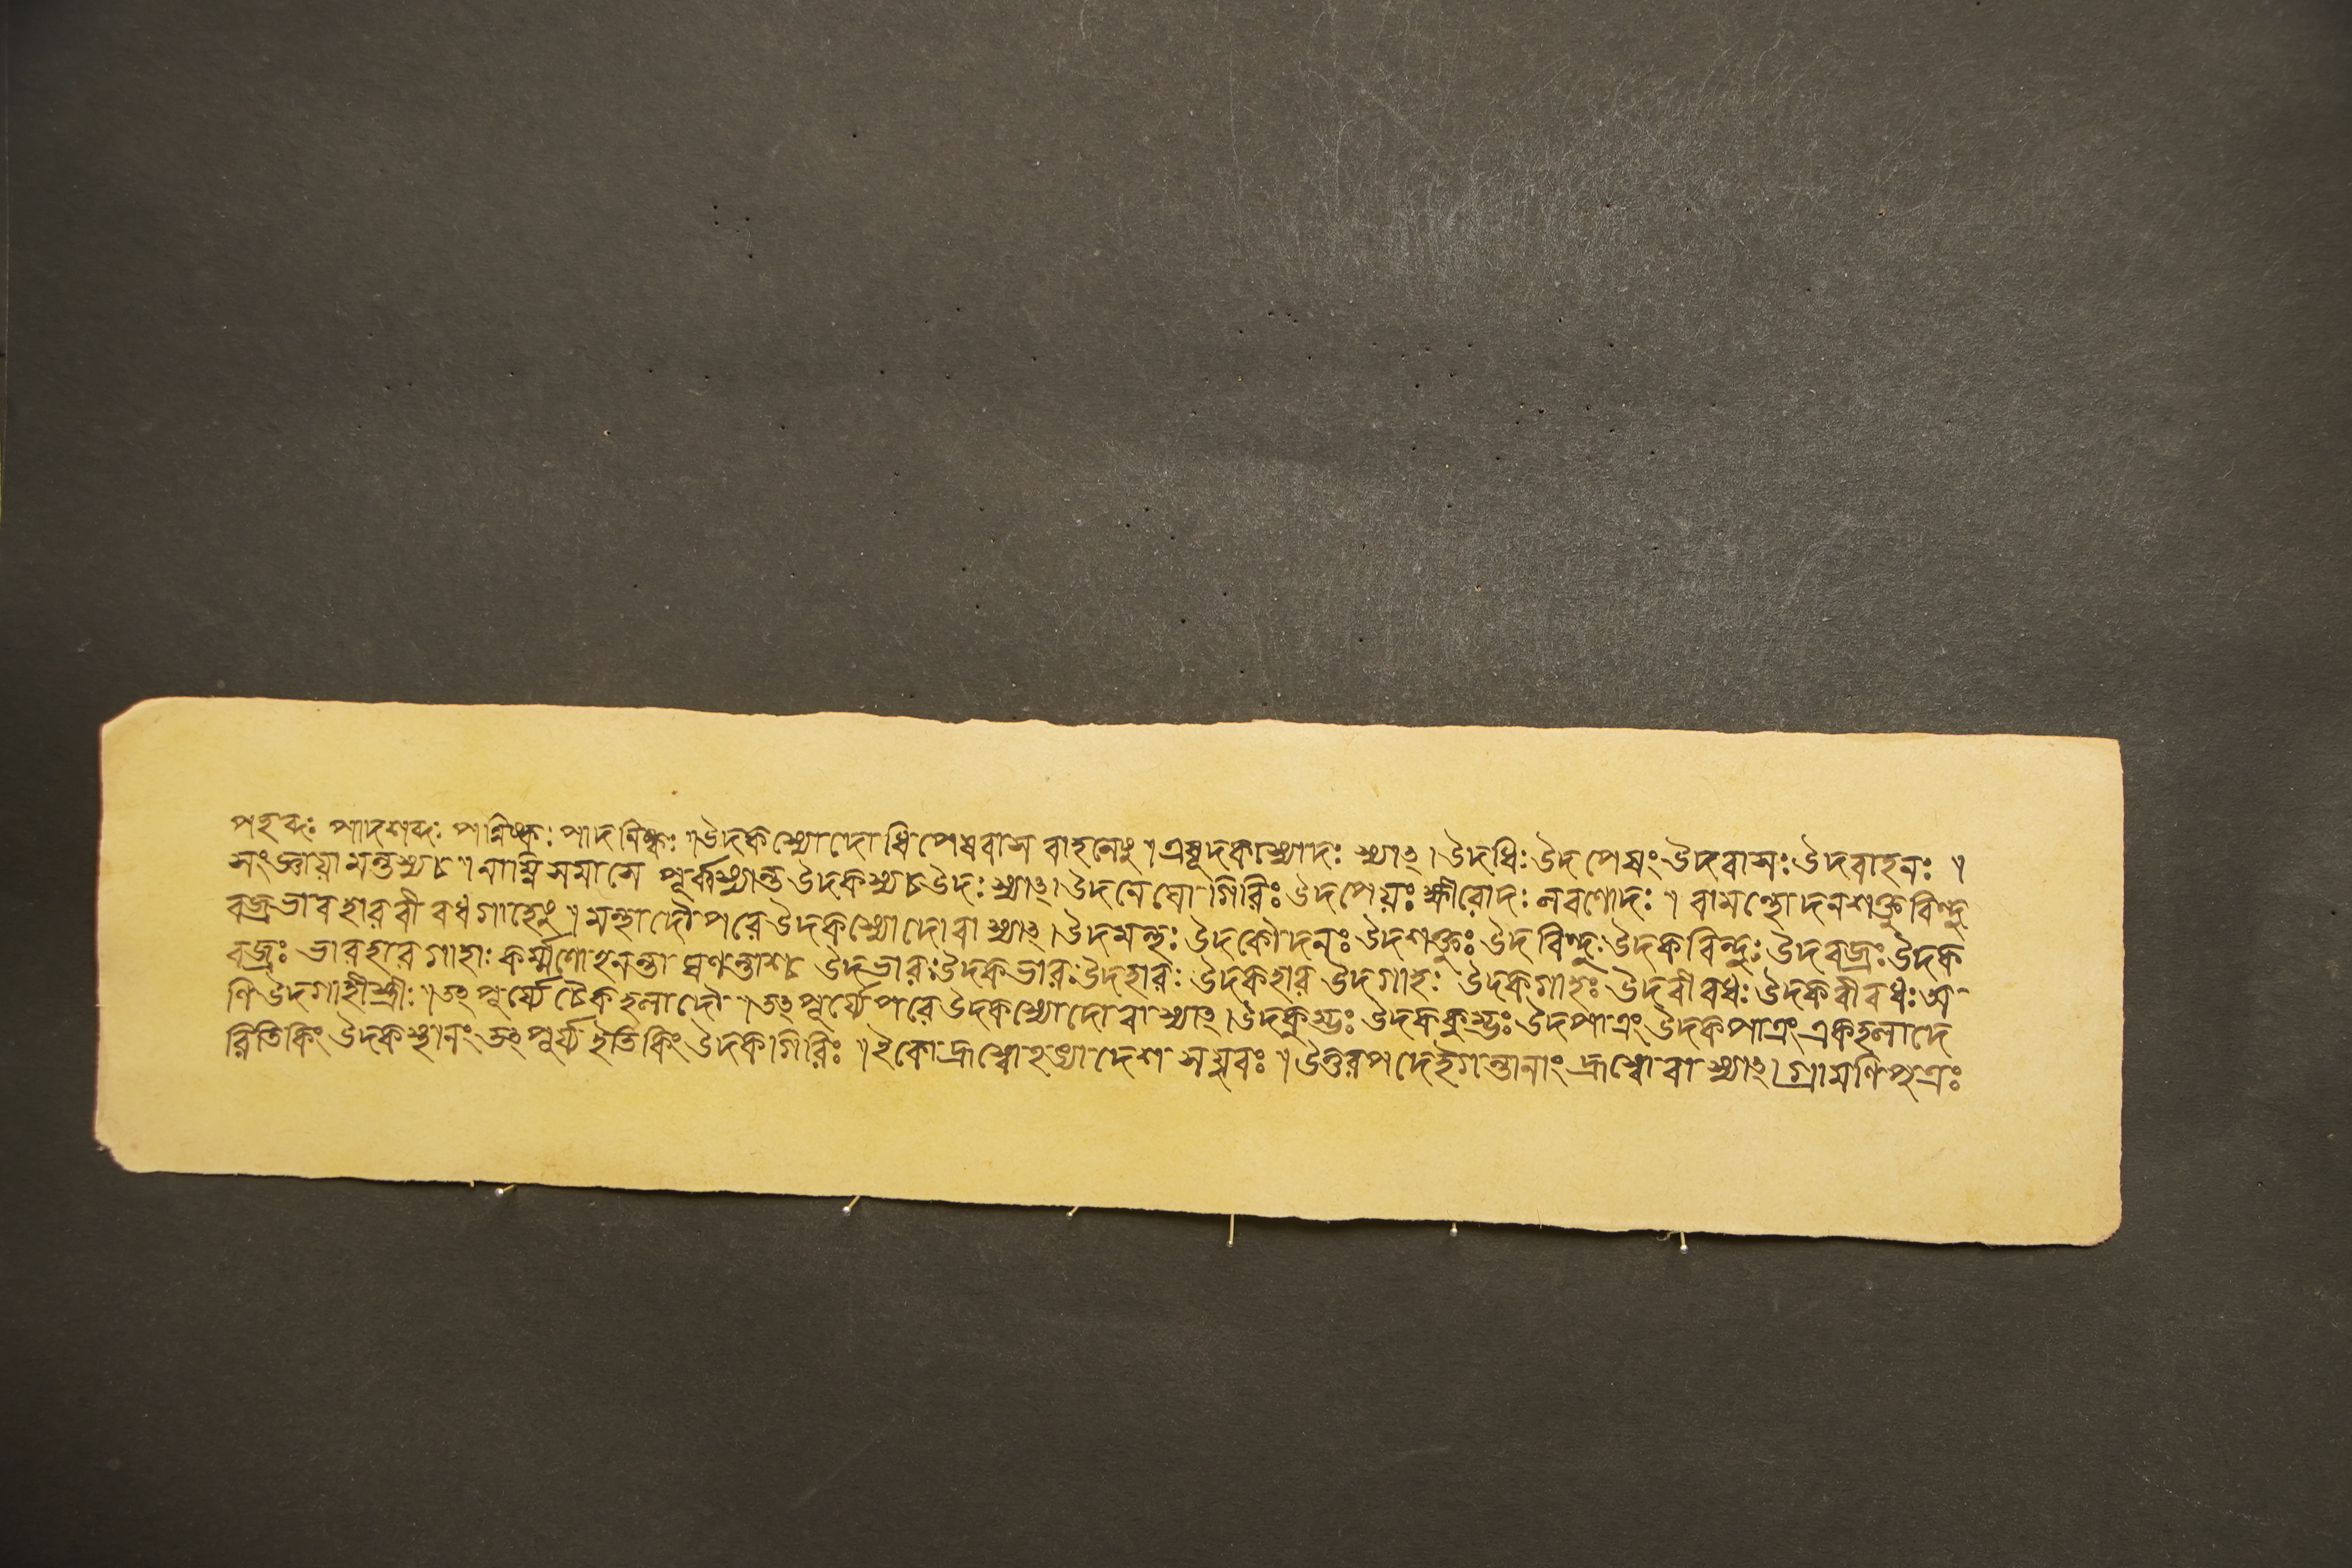 পচ্ছব্দঃ পাদশব্দঃ পন্নিষ্কঃ পাদনিষ্কঃ ৷৷ উদকস্যোদো ধি পেষবাস বাহনেষু ৷ এষূদকস্যোদঃ স্যাৎ ৷ উদধিঃ উদপেষং উদবাসঃ উদবাহনঃ ৷
সংজ্ঞায়ামন্তস্য চ ৷৷ নাম্নি সমাসে পূর্ব্বস্যান্ত উদকস্য চ উদঃ স্যাৎ ৷ উদমেঘো গিরিঃ উদপেয়ঃ ক্ষীরোদঃ লবণোদঃ ৷৷ বা মন্থোদনশক্তুবিন্দু
বজ্রভারহারবীবধগাহেষু ৷৷ মন্থাদৌ পরে উদকস্যোদো বা স্যাৎ ৷ উদমন্থঃ উদকৌদনঃ উদশক্তুঃ উদবিন্দুঃ উদকবিন্দুঃ উদবজ্রঃ উদক
বজ্রঃ ভারহারগাহাঃ কর্ম্মণোহনন্তা ঘঞন্তাশ্চ উদভারঃ উদকভারঃ উদহারঃ উদকহার উদগাহঃ উদকগাহঃ উদবীবধঃ উদকবীবধঃ অ
ণি উদগাহীস্ত্রীঃ ৷৷ তৎ পূর্য্যে চৈকহলাদৌ ৷৷ তৎ পূর্য্যে পরে উদকস্যোদো বা স্যাৎ ৷ উদকুম্ভঃ উদককুম্ভঃ উদপাত্রং উদকপাত্রং একহলাদে
রিতি কিং উদকস্থানং তৎ পূর্য্য ইতি কিং উদকগিরিঃ ৷৷ ইকো হ্রস্বোহ ড্যাদেশ সয়ুবঃ ৷৷ উত্তরপদে ইগন্তানাং হ্রস্বো বা স্যাৎ ৷ গ্রামণিপুত্রঃ